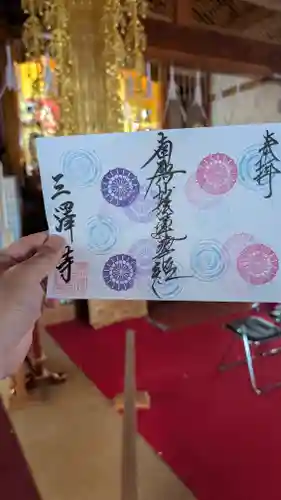 奉拝
南無妙法蓮華経
三澤寺